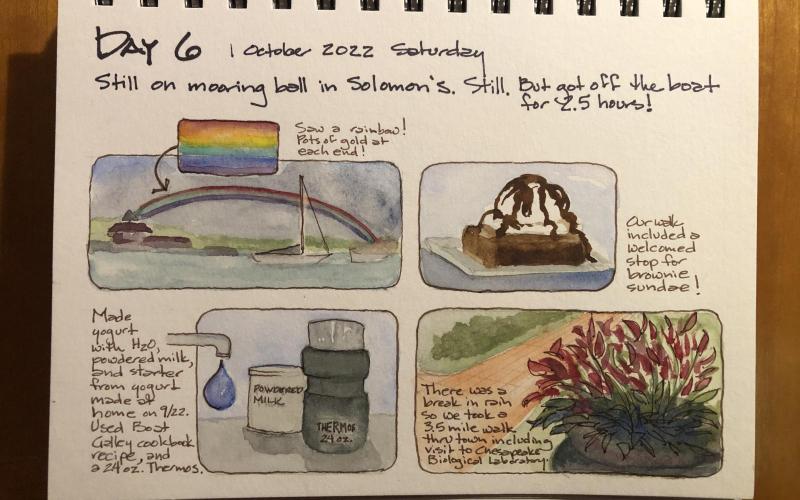 DAY 6 1 October 2022 Saturday
Still on mooring ball in Solomon's. Still. But got off the boat
for 2.5 hours!
Saw a rainbow!
Pots of gold at
each end!
Our walk
included a
welcomed
stop for
brownie
sundae!
Made
yogurt
with H2O,
powdered milk,
and starter
from yogurt
made at
home on 9/22.
Used Boat
Galley cookbook
recipe, and
a 24 oz. Thermos.
POWDERED
MILK
THERMOS
24 oz.
There was a
break in rain
so we took a
3.5 mile walk
thru town including
visit to Chesapeake
Biological Laboratory.